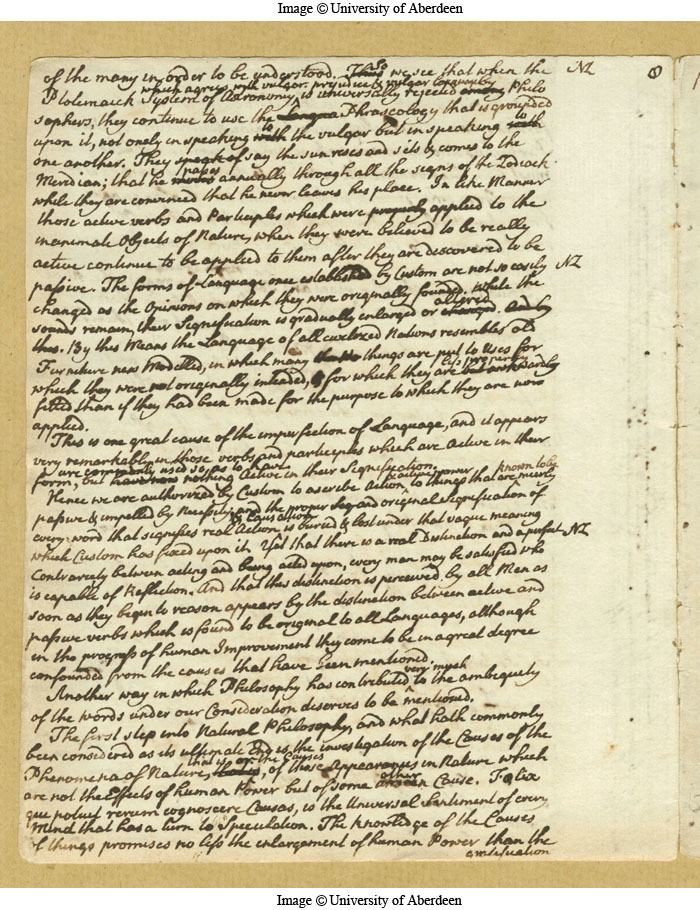 Image © University of Aberdeen
of the many in order to be understood. Thus So we see that when the NL
which agrees with vulgar prejudice & vulgar language
Ptolemaick System of Astronomy, is universally rejected among Philo
sophers, they continue to use the Phraseology that is grounded
upon it, not onely in speaking with to the vulgar but in speaking with to
one another. They speak of say the sun rises and sets & comes to the
Meridian; that he passes annually through all the signs of the Zodiack
while they are convinced that he never leaves his place. In like Manner
those active verbs and Participles which were properly applied to the
inanimate Objects of Nature, when they were believed to be really
active continue to be applied to them after they are discovered to be
passive. The forms of Language once established by Custom are not so easily NL
changed as the Opinions on which they were originally founded. While the
sounds remain, their Signification is gradually enlarged or changed altered. And by
this. By this Means the Language of all civilized Nations resembles old
Furniture new Modelled, in which many things are put to Uses for
which they were not originally intended, & for which they are less properly but awkwardly
fitted than if they had been made for the purpose to which they are now
applied.
This is one great cause of the imperfection of Language, and it appears
very remarkably in those verbs and participles which are Active in their
form, but are commonly used so as to have nothing Active in their Signification.
Hence we are authorized by Custom to ascribe Action & active power to things that are known to be meerly
passive & impelled by Necessity; and the proper and original Signification of
every word that signifies real Action & causation is buried & lost under that vague meaning
which Custom has fixed upon it. Yet that there is a real Distinction and a perfect NL
Contrariety between acting and being acted upon, every man may be satisfied who
is capable of Reflection. And that this distinction is perceived by all Men as
soon as they begin to reason appears by the distinction between active and
passive verbs which is found to be original to all Languages, although
in the progress of human Improvement they come to be in a great degree
confounded from the causes that have been mentioned.
Another way in which Philosophy has contributed very much to the ambiguity
of the words under our Consideration deserves to be mentioned.
The first step into Natural Philosophy, and what hath commonly
been considered as its ultimate End is the investigation of the Causes of the
Phenomena of Nature, that is of the Causes of those Appearances in Nature which
are not the Effects of human Power but of some other Cause. Felix
que potuit rerum cognoscere Causas, is the Universal Sentiment of every
mind that has a turn to Speculation. The knowledge of the Causes
of things promises no less the enlargement of human Power than the
Image © University of Aberdeen